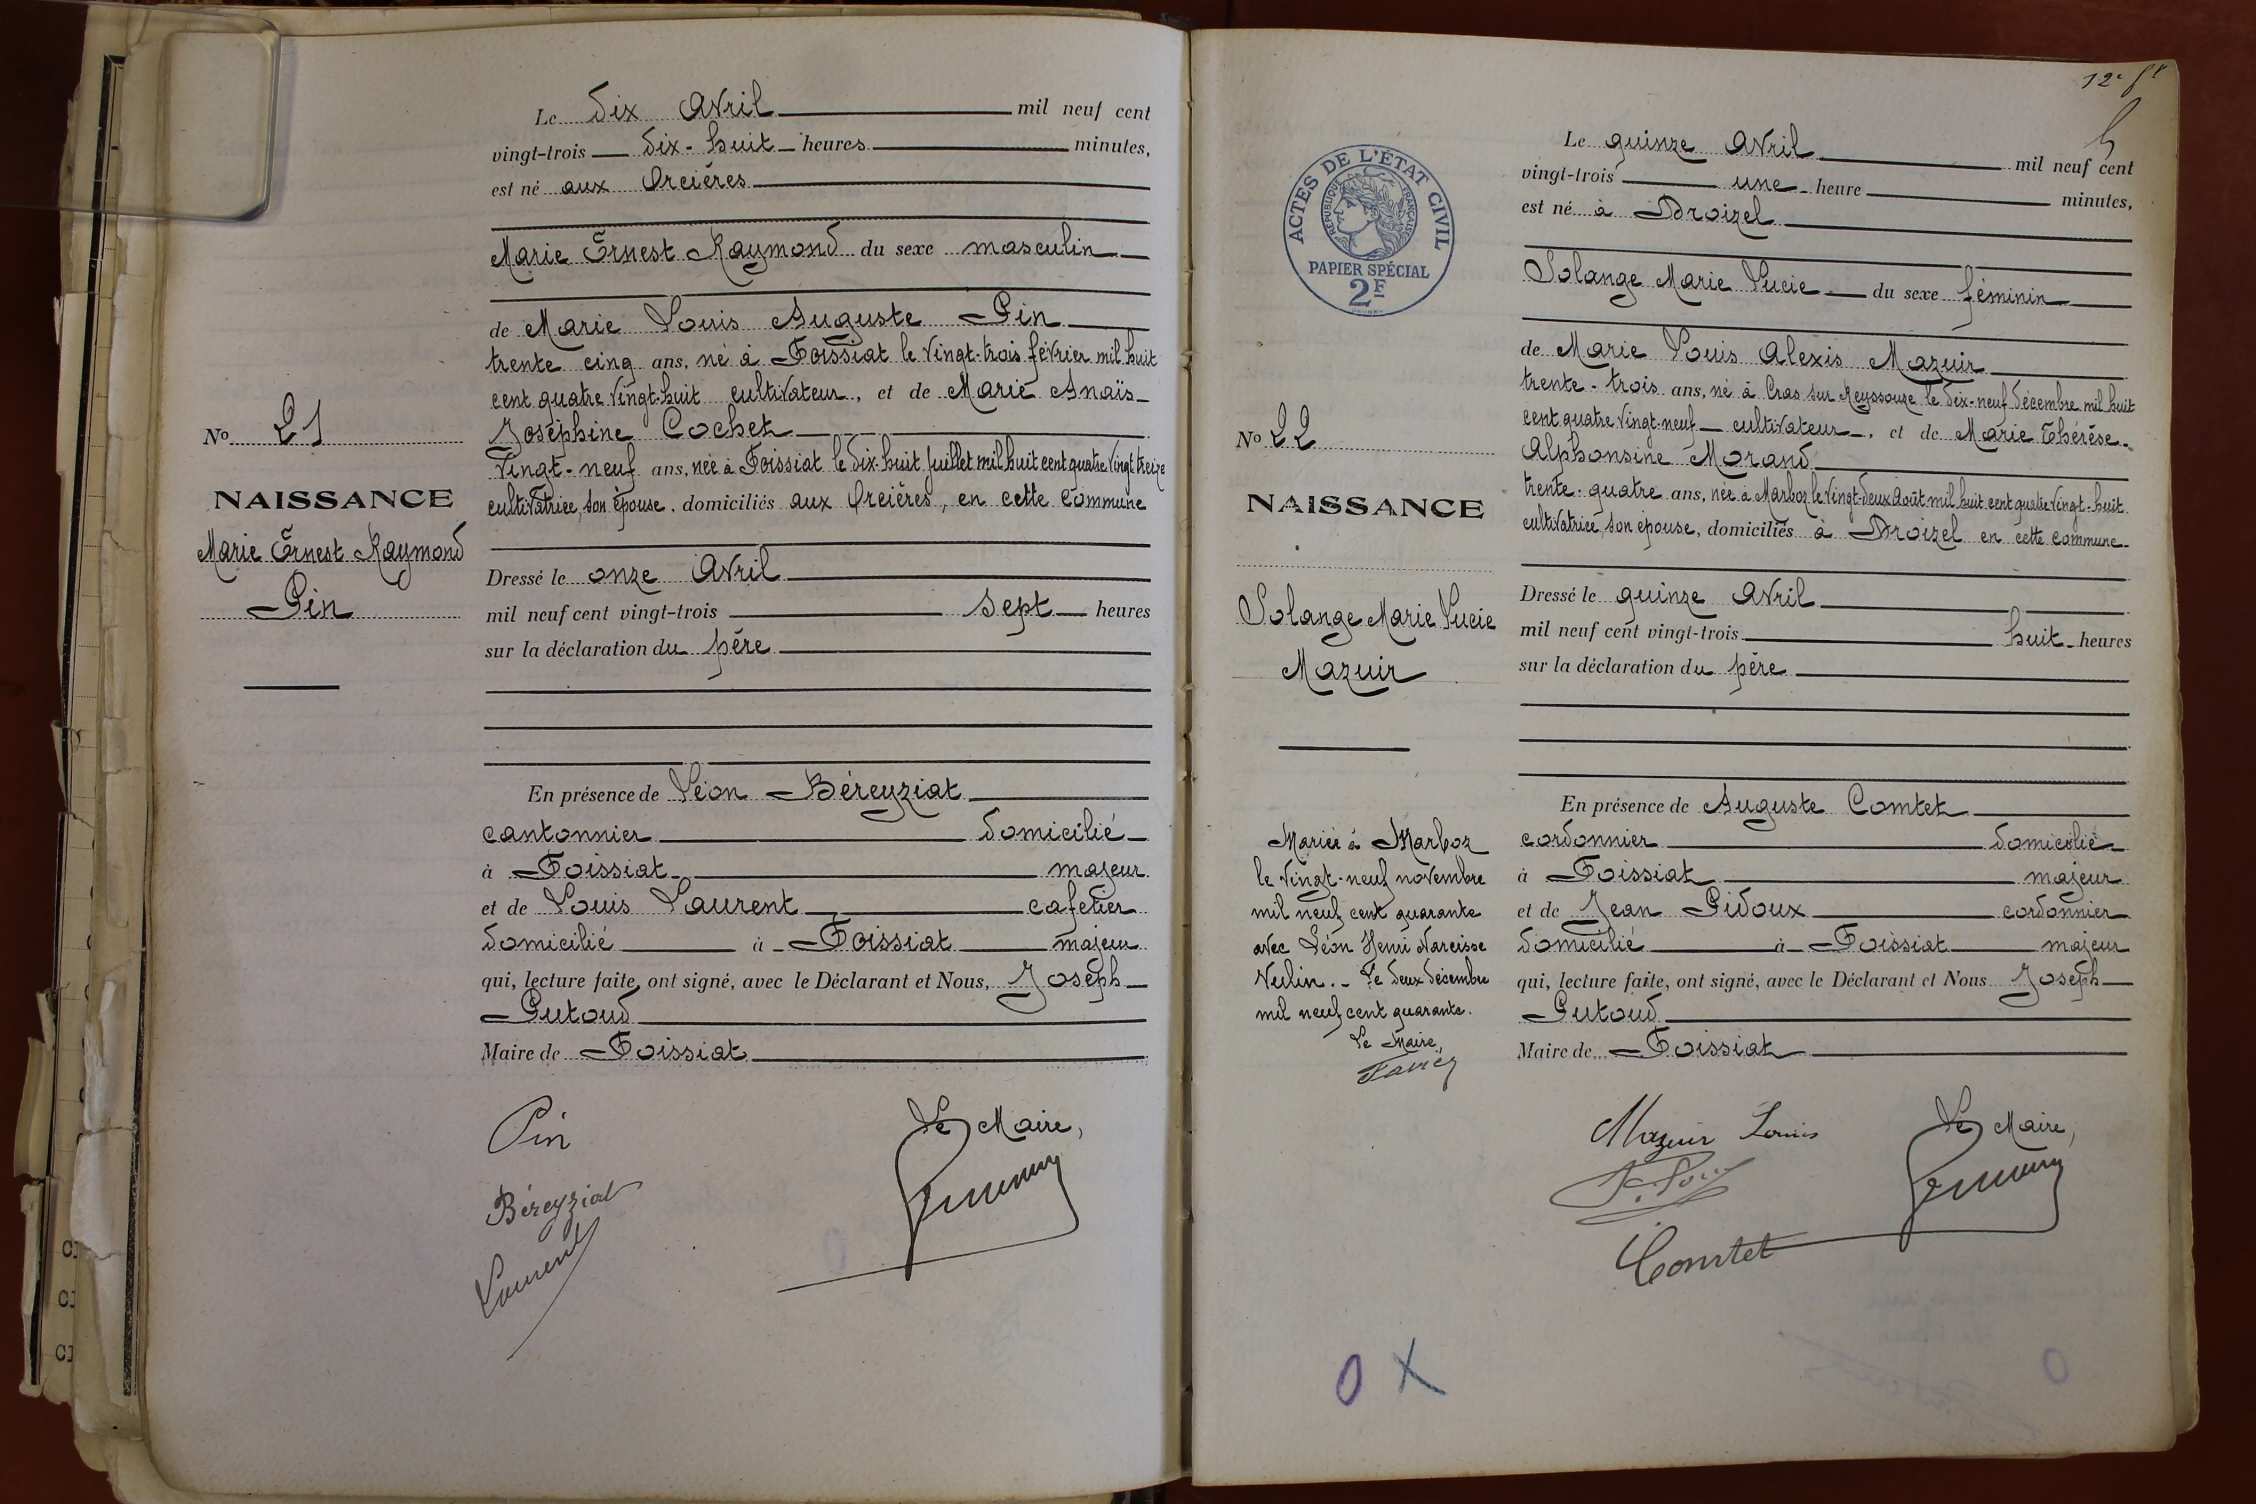 Le dix Avril mil neuf cent
vingt-trois dix-huit heures minutes,
est né aux Orcières
Marie Ernest Raymond du sexe masculin
de Marie Louis Auguste Pin
trente cinq ans, né à Foissiat le vingt-trois février mil huit
cent quatre vingt-huit cultivateur, et de Marie Anaïs
Joséphine Cochet
vingt-neuf ans, née à Foissiat le dix-huit Juillet mil huit cent quatre vingt treize
cultivatrice, son épouse, domiciliés aux Orcières, en cette commune
Dressé le onze Avril
mil neuf cent vingt-trois sept heures
sur la déclaration du père
En présence de Léon Béreyziat
cantonnier domicilié
à Foissiat majeur
et de Louis Laurent cafetier
domicilié à Foissiat majeur
qui, lecture faite, ont signé, avec le Déclarant et Nous, Joseph
Putoud
Maire de Foissiat
No 21
NAISSANCE
Marie Ernest Raymond
Pin
Pin
Le Maire,
Béreyziat
Laurent
12e ft
ACTES DE L'ÉTAT CIVIL
RÉPUBLIQUE FRANÇAISE
PAPIER SPÉCIAL
2F
Le quinze Avril mil neuf cent
vingt-trois une heure minutes,
est né à Droizel
Solange Marie Lucie du sexe féminin
de Marie Louis Alexis Mazuir
trente-trois ans, né à Cras sur Reyssouze le dix-neuf décembre mil huit
cent quatre vingt-neuf cultivateur, et de Marie Thérèse
Alphonsine Morand
trente-quatre ans, née à Marboz le vingt-deux Août mil huit cent quatre vingt-huit
cultivatrice, son épouse, domiciliés à Droizel en cette commune
Dressé le quinze Avril
mil neuf cent vingt-trois huit heures
sur la déclaration du père
En présence de Auguste Comtet
cordonnier domicilié
à Foissiat majeur
et de Jean Pidoux cordonnier
domicilié à Foissiat majeur
qui, lecture faite, ont signé, avec le Déclarant et Nous Joseph
Putoud
Maire de Foissiat
No 22
NAISSANCE
Solange Marie Lucie
Mazuir
Mariée à Marboz
le vingt-neuf novembre
mil neuf cent quarante
avec Léon Henri Narcisse
Neulin. Le deux décembre
mil neuf cent quarante.
Le Maire,
Mazuir Louis
Le Maire,
Comtet
O X